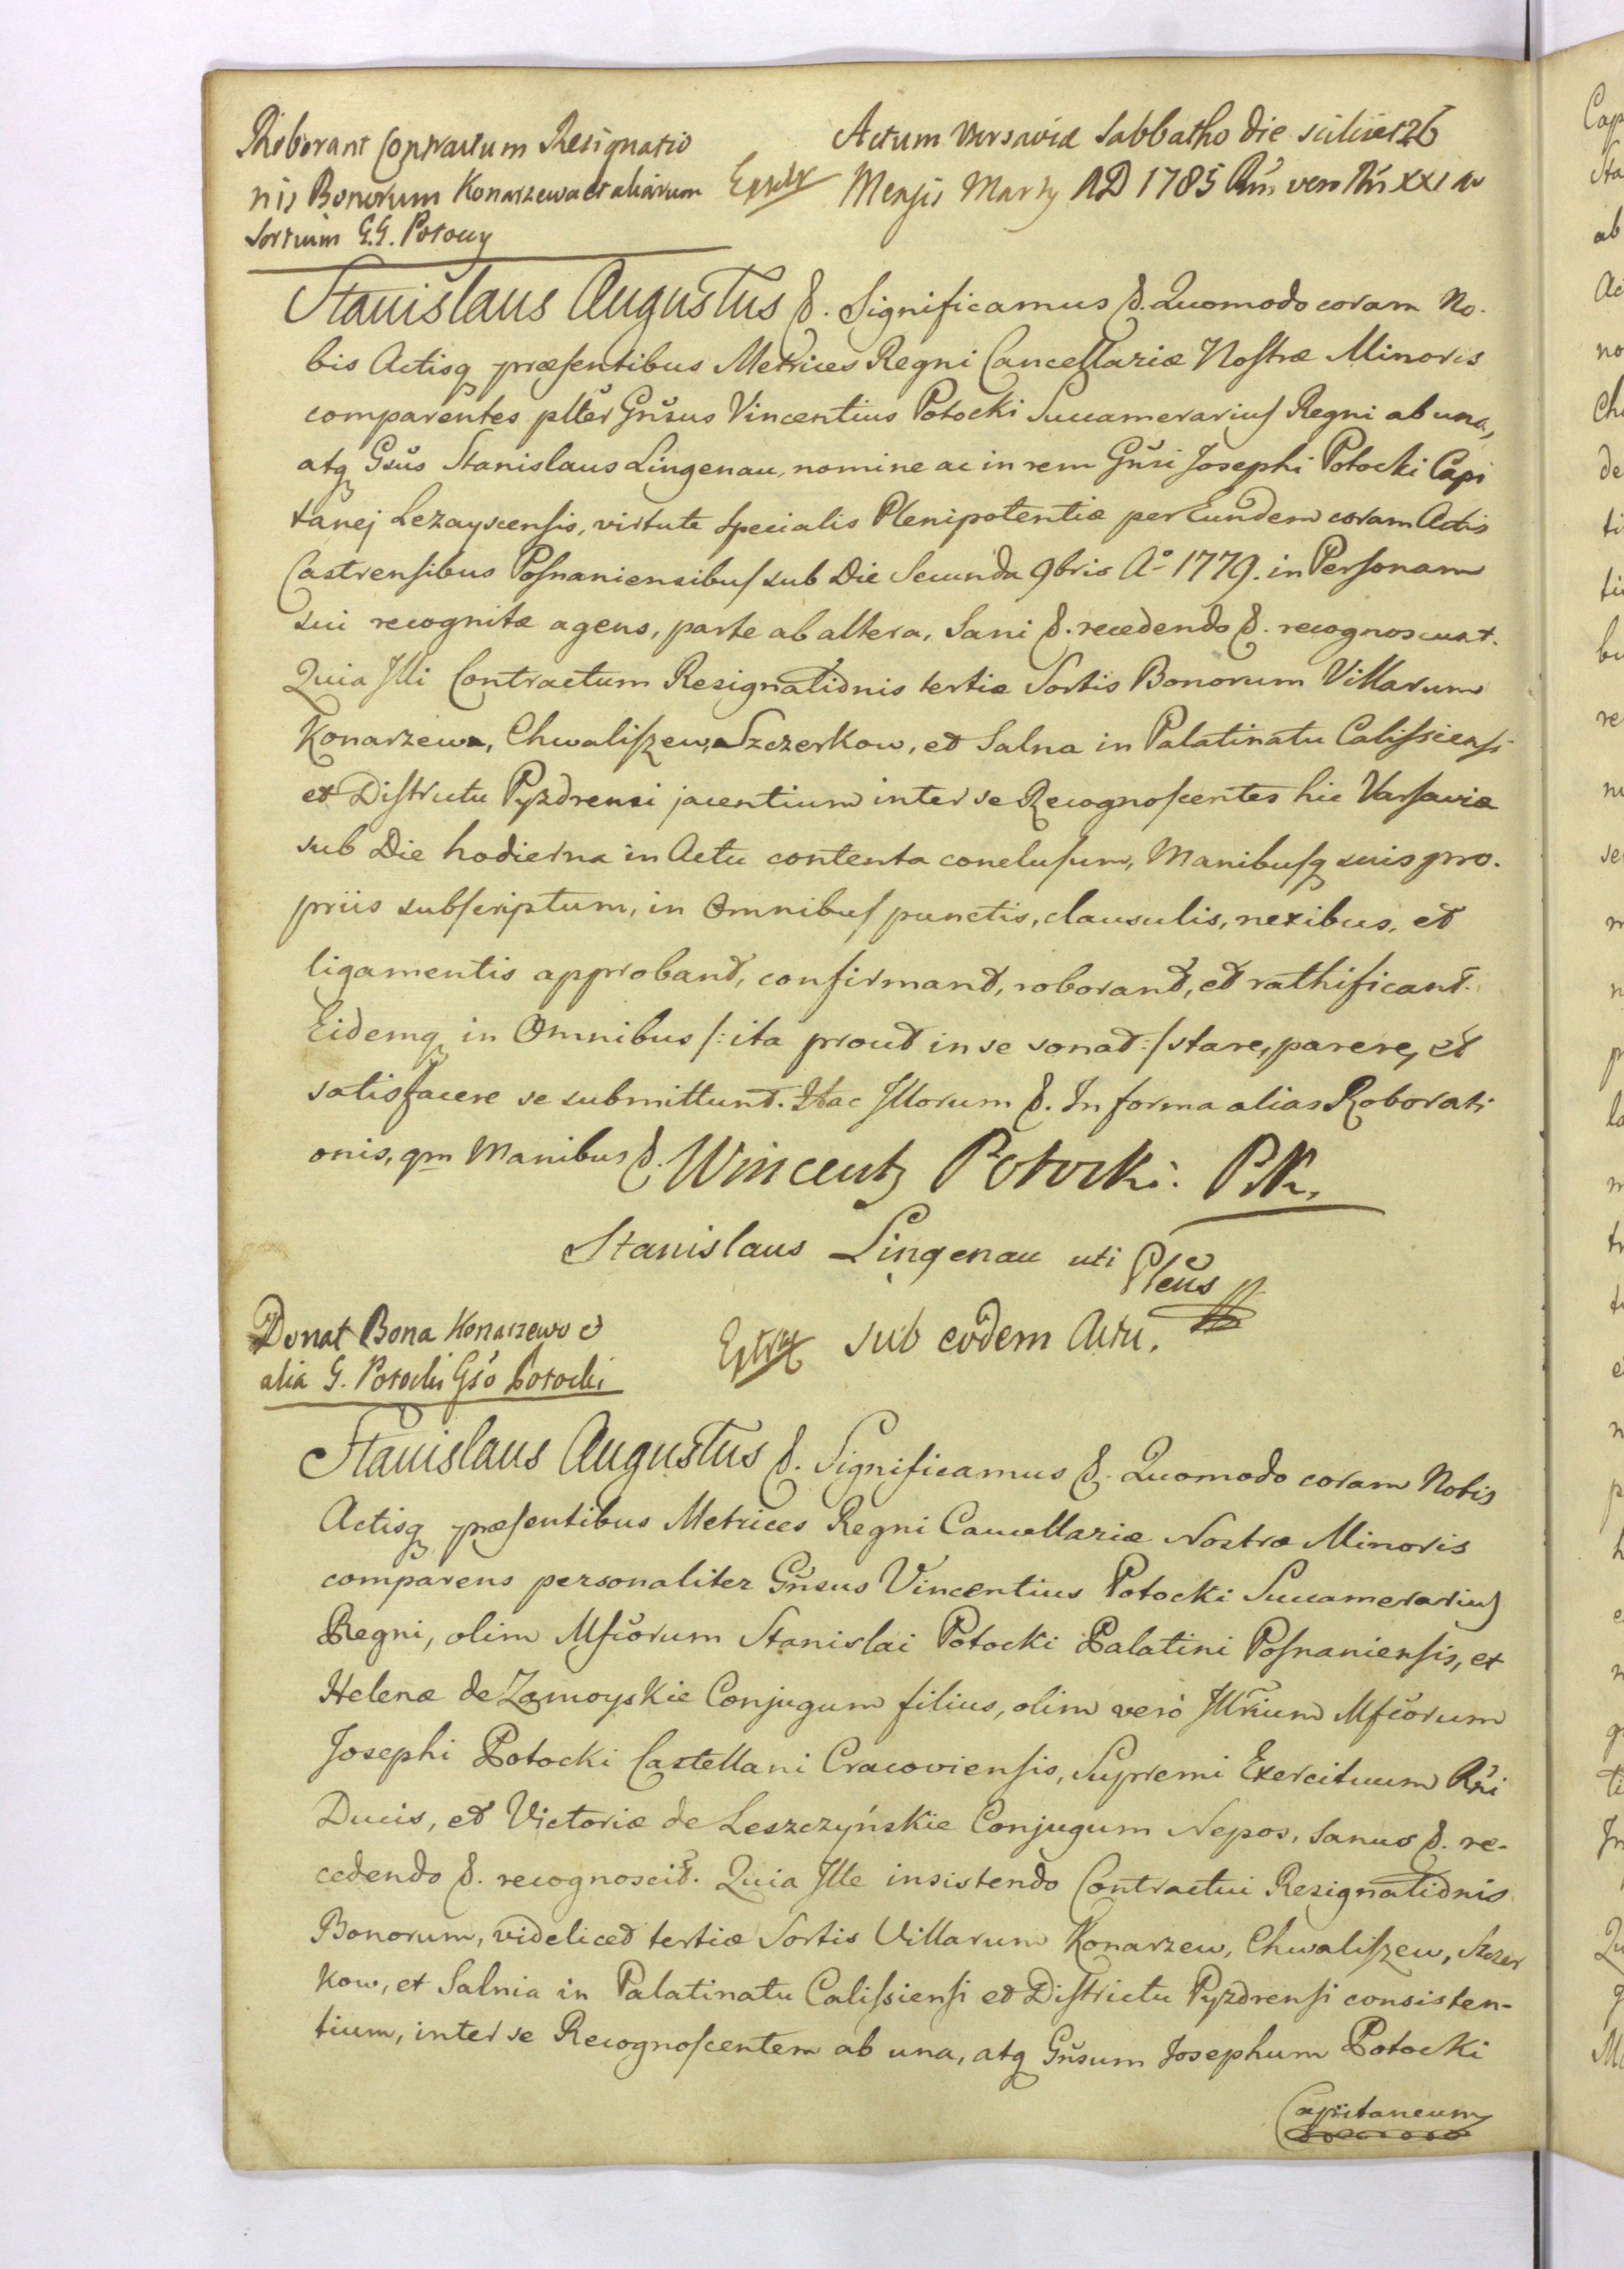 Roborant Contractum Resignatio
nis Bonorum Konarzewa et aliarum
Sortium G.G. Potoccy
Extr
Actum Varsaviæ Sabbatho die scilicet 26
Mensis Martij AD 1785 Rñi vero Ñri XXI ao
Stanislaus Augustus &. Significamus &. Quomodo coram No.
bis Actisq præsentibus Metrices Regni Cancellariæ Nostræ Minoris
comparentes plter Gñsus Vincentius Potocki Succamerarius Regni ab una,
atq Gsus Stanislaus Lingenau, nomine ac in rem Gñsi Josephi Potocki Capi
tanej Lezayscensis, virtute specialis Plenipotentiæ per Eundem coram Actis
Castrensibus Posnaniensibus sub Die Secunda 9bris Aº 1779. in Personam
sui recognitæ agens, parte ab altera, Sani &. recedendo &. recognoscunt.
Quia Illi Contractum Resignationis tertiæ Sortis Bonorum Villarum
Konarzewa, Chwaliszew, Szczerkow, et Salna in Palatinatu Calissiensi
et Districtu Pyzdrensi jacentium inter se Recognoscentes hic Varsaviæ
sub Die hodierna in Actu contenta conclusum, Manibusq suis pro.
priis subscriptum, in Omnibus punctis, clausulis, nexibus, et
ligamentis approbant, confirmant, roborant, et rathificant.
Eidemq in Omnibus /: ita prout in se sonat :/ stare, parere, et
satisfacere se submittunt. Hac Illorum &. In forma alias Roborati
onis, qm Manibus &. Wincenty Potocki. P.K.
Stanislaus Lingenau uti Pleñs
Donat Bona Konarzewo et
alia G. Potocki Gso Potocki
Extr
sub eodem Actu.
Stanislaus Augustus &. Significamus &. Quomodo coram Nobis
Actisq præsentibus Metrices Regni Cancellariæ Nostræ Minoris
comparens personaliter Gñsus Vincentius Potocki Succamerarius
Regni, olim Mfcorum Stanislai Potocki Palatini Posnaniensis, et
Helenæ de Zamoyskie Conjugum filius, olim vero Illrium Mfcorum
Josephi Potocki Castellani Cracoviensis, Supremi Exercituum Rñi
Ducis, et Victoriæ de Leszczyńskie Conjugum Nepos, sanus &. re-
cedendo &. recognoscit. Quia Ille insistendo Contractui Resignationis
Bonorum, videlicet tertiæ Sortis Villarum Konarzew, Chwaliszew, Szczer
kow, et Salnia in Palatinatu Calissiensi et Districtu Pyzdrensi consisten-
tium, inter se Recognoscentem ab una, atq Gñsum Josephum Potocki
Capitaneum